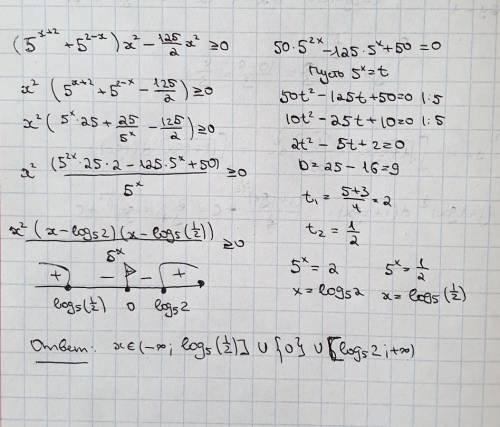 (5^{x+2} + 5^{2-x}) x² - \frac{125}{2} x² ≥ 0
x² (5^{x+2} + 5^{2-x} - \frac{125}{2}) ≥ 0
x² (5^x · 25 + \frac{25}{5^x} - \frac{125}{2}) ≥ 0
x² \frac{(5^{2x} · 25 · 2 - 125 · 5^x + 50)}{5^x} ≥ 0
\frac{x² (x - log₅2)(x - log₅(\frac{1}{2}))}{5^x} ≥ 0
+ − − +
log₅(\frac{1}{2}) 0 log₅2
50 · 5^{2x} - 125 · 5^x + 50 = 0
Пусть 5^x = t
50t² - 125t + 50 = 0 |:5
10t² - 25t + 10 = 0 |:5
2t² - 5t + 2 = 0
D = 25 - 16 = 9
t₁ = \frac{5+3}{4} = 2
t₂ = \frac{1}{2}
5^x = 2 5^x = \frac{1}{2}
x = log₅2 x = log₅(\frac{1}{2})
Ответ: x ∈ (-∞; log₅(\frac{1}{2})] ∪ {0} ∪ [log₅2; +∞)